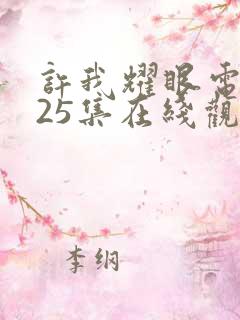 許我耀眼電
25集在綫觀
李纲